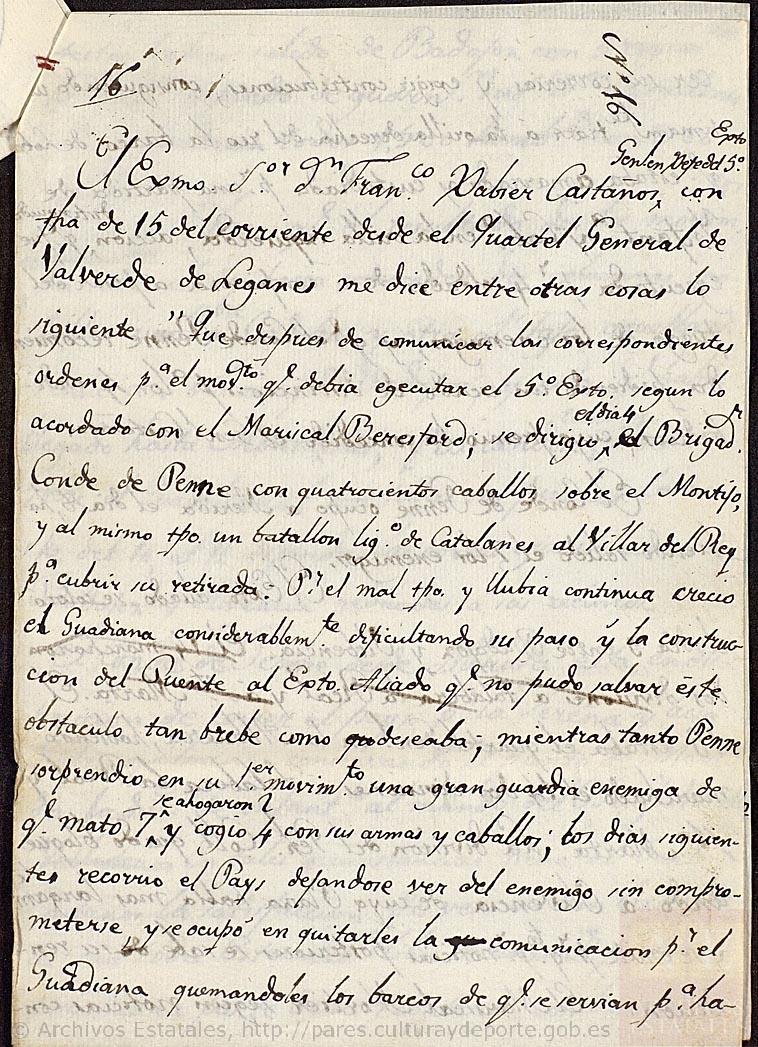 16
Nº 16
Exto
Genl en Xefe del 5º
El Exmo. S.or Dn Fran.co Xabier Castaños, con
fha de 15 del corriente desde el Quartel General de
Valverde de Leganes me dice entre otras cosas lo
siguiente " Que despues de comunicar las correspondientes
ordenes p.a el mov.to q.e debia egecutar el 5.o Exto. segun lo
el dia 4
acordado con el Mariscal Beresford; se dirigio el Brigad.r
Conde de Penne con quatrocientos caballos sobre el Montijo,
y al mismo tpo. un batallon lig.o de Catalanes al Villar del Rey
p.a cubrir su retirada: P.r el mal tpo. y llubia continua crecio
el Guadiana considerablem.te dificultando su paso y la construc-
cion del Puente al Exto. Aliado q.e no pudo salvar éste
obstaculo tan brebe como deseaba; mientras tanto Penne
sorprendio en su 1.er movim.to una gran guardia enemiga de
se ahogaron 2
q.e mató 7, y cogio 4 con sus armas y caballos; los dias siguien-
tes recorrio el Pays dejandose ver del enemigo sin compro-
meterse, y se ocupó en quitarles la comunicacion p.r el
Guadiana quemandoles los barcos de q.e se servian p.a ha-
© Archivos Estatales, http://pares.culturaydeporte.gob.es